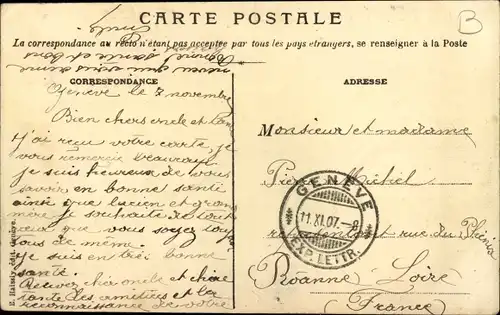 CARTE POSTALE
La correspondance au recto n'étant pas acceptée par tous les pays étrangers, se renseigner à la Poste
B
CORRESPONDANCE
Genève le 7 novembre
Bien chers oncle et
J'ai reçu votre carte, je
vous remercie beaucoup
je suis heureux de vous
savoir en bonne santé
ainsi que Lucien et gran
mère je souhaite de tout
que vous soyez tous
de même.
Je suis en très bonne
santé.
Recevez cher oncle et chère
tante les amitiés et la
reconnaissance de votre
ADRESSE
Monsieur et madame
Pierre Michel
rue du Phénix
Roanne Loire
(France)
GENÈVE
11.XI.07.-8
EXP. LETTR.